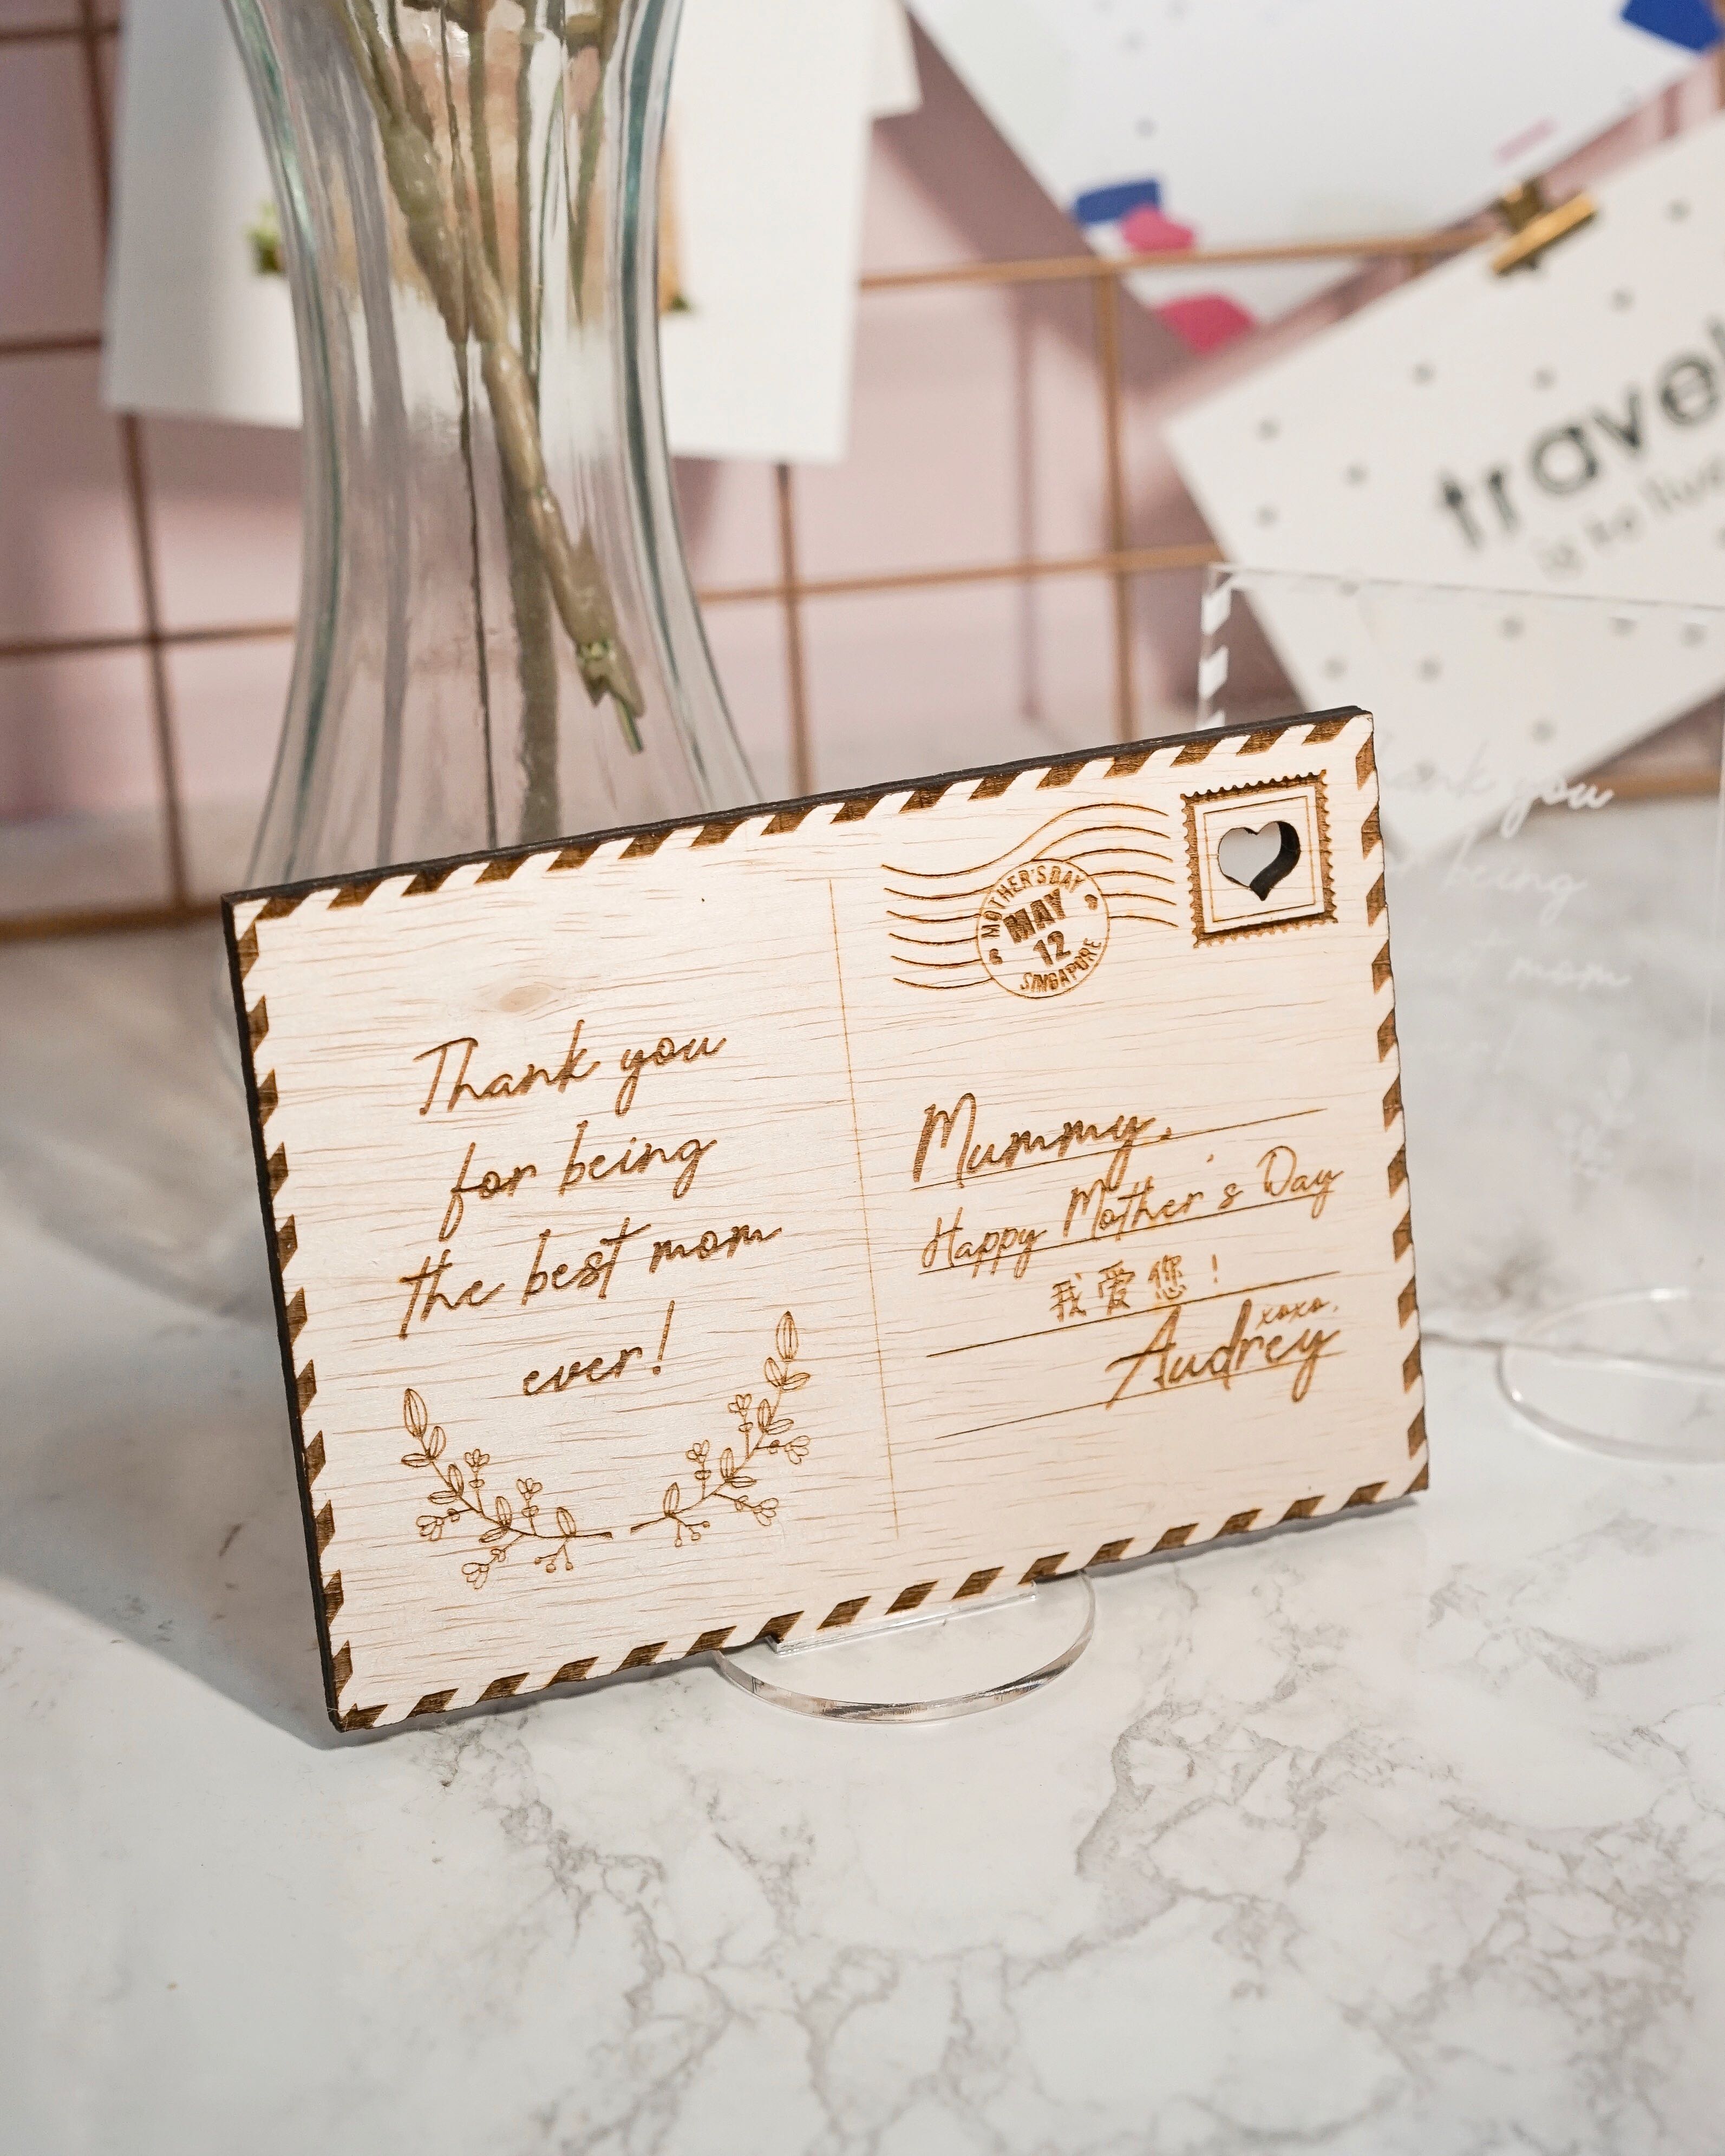 travel
is to live
Thank you
for being
the best mom
ever!
MOTHER'S DAY
MAY
12
SINGAPORE
Mummy,
Happy Mother's Day
我爱您!
xoxo,
Audrey
you
being
mom